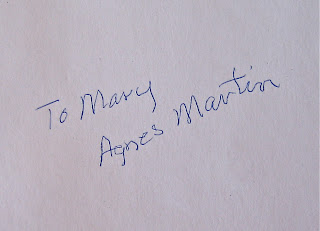 To Mary
Agnes Martin